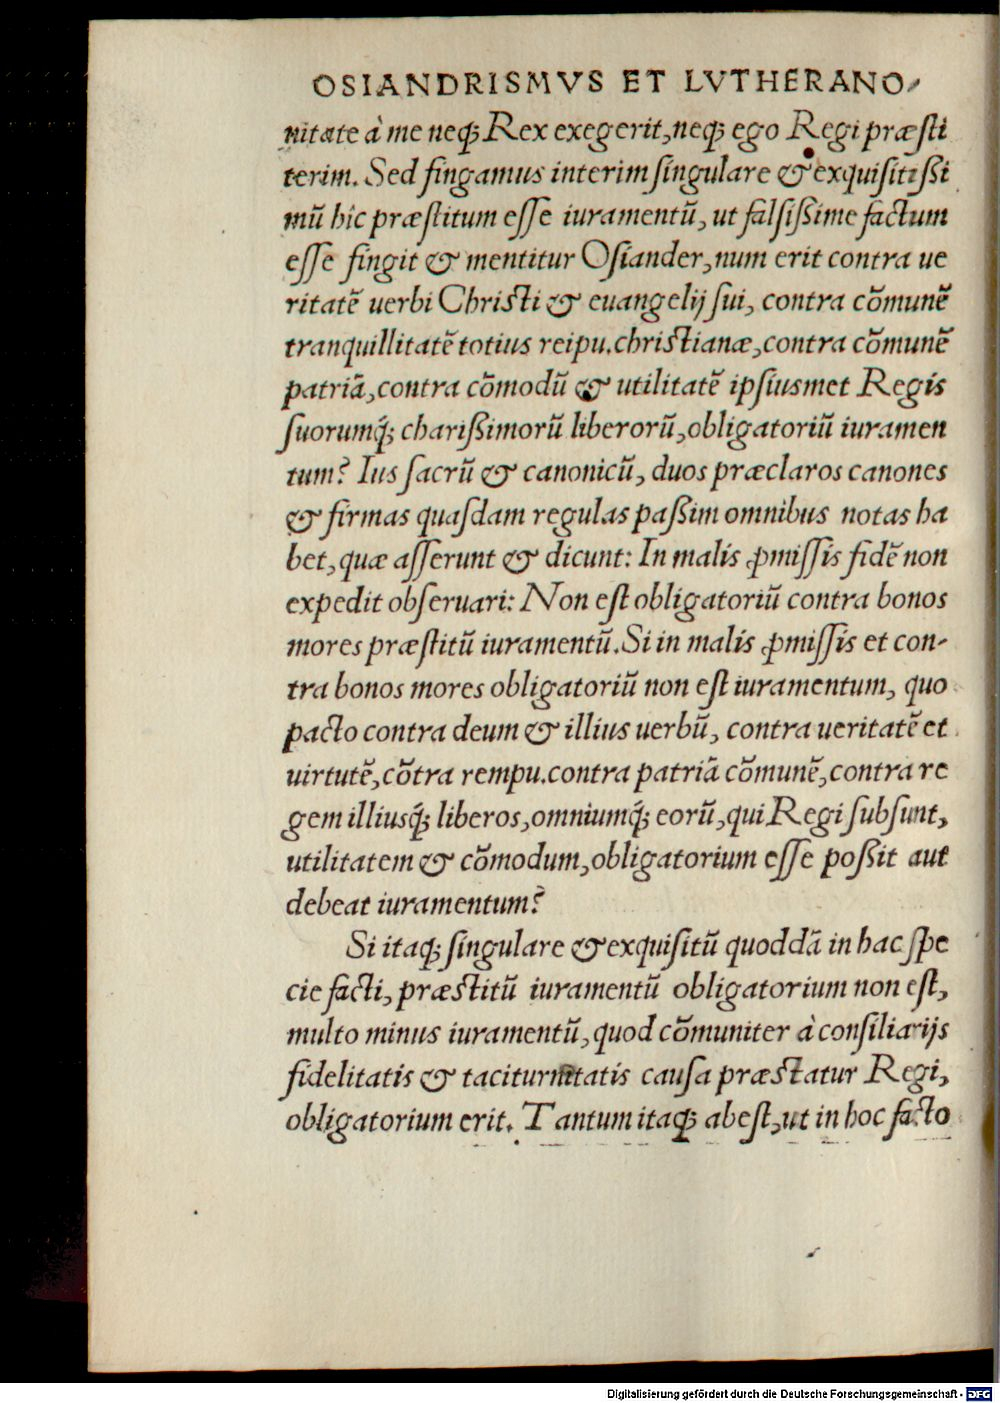 OSIANDRISMVS ET LVTHERANO⸗
nitate à me neq; Rex exegerit, neq; ego Regi præsti
terim. Sed fingamus interim singulare & exquisitißi
mũ hic præstitum esse iuramentũ, ut falsißime factum
esse fingit & mentitur Osiander, num erit contra ue
ritatẽ uerbi Christi & euangelij sui, contra cõmunẽ
tranquillitatẽ totius reipu. christianæ, contra cõmunẽ
patriã, contra cõmodũ & utilitatẽ ipsiusmet Regis
suorumq́; charißimorũ liberorũ, obligatoriũ iuramen
tum? Ius sacrũ & canonicũ, duos præclaros canones
& firmas quasdam regulas paßim omnibus notas ha
bet, quæ asserunt & dicunt: In malis ꝓmissis fidẽ non
expedit obseruari: Non est obligatoriũ contra bonos
mores præstitũ iuramentũ. Si in malis ꝓmissis et con-
tra bonos mores obligatoriũ non est iuramentum, quo
pacto contra deum & illius uerbũ, contra ueritatẽ et
uirtutẽ, cõtra rempu. contra patriã cõmunẽ, contra re
gem illiusq́; liberos, omniumq́; eorũ, qui Regi subsunt,
utilitatem & cõmodum, obligatorium esse poßit aut
debeat iuramentum?
Si itaq; singulare & exquisitũ quoddã in hac spe
cie facti, præstitũ iuramentũ obligatorium non est,
multo minus iuramentũ, quod cõmuniter à consiliarijs
fidelitatis & taciturnitatis causa præstatur Regi,
obligatorium erit. Tantum itaq; abest, ut in hoc facto
Digitalisierung gefördert durch die Deutsche Forschungsgemeinschaft - DFG